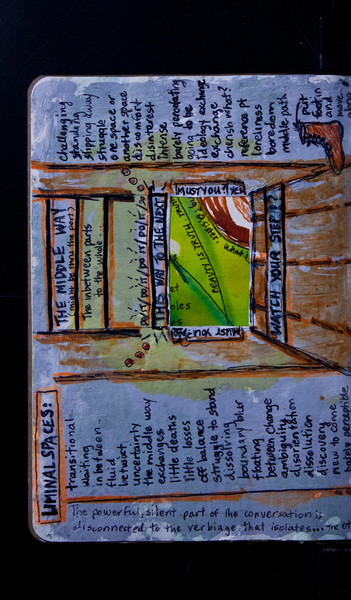 LIMINAL SPACES:
transitional
waiting
in between...
fluid
betwixt
uncertainty
the middle way
exchanges
little deaths
little losses
off balance
struggle to stand
dissolving
boundary blur
floating
between change
ambiguity
disorientation
dissolution
discovery
new to come
barely perceptible
THE MIDDLE WAY
The inbetween parts
to the whole...
DO IT/DO IT/DO IT/DO IT/
THIS WAY TO THE NEXT!
MUST YOU? YES!
BEAUTY IS TRUTH.
what?
MUST YOU?
WATCH YOUR STEP!?
challenging
standing
slipping away
struggle
one space or
another space
discomfort
disinterest
intense
barely percolating
going to be
ideology exchange
exchange
cherish what?
reference pt
loneliness
boredom
middle path
put
foot in
and
move
The powerful, silent part of the conversation is
disconnected to the verbiage that isolates...